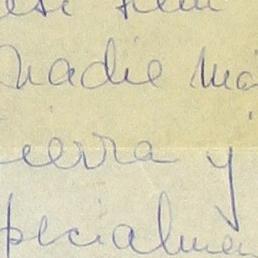 ese
nadie má
ierra y
pecialmen